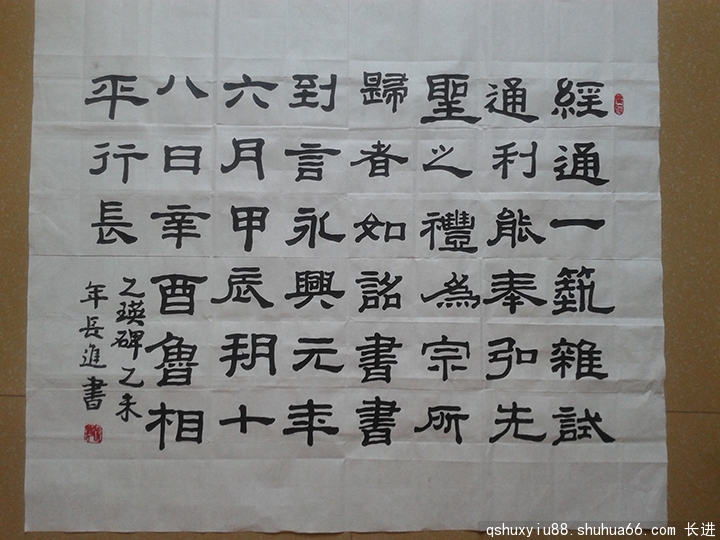 經通一藝雜試
通利能奉弘先
聖之禮為宗所
歸者如詔書書
到言永興元年
六月甲辰朔十
八日辛酉魯相
平行長
乙瑛碑乙未
年長進書
qshuxyiu88.shuhua66.com 长进